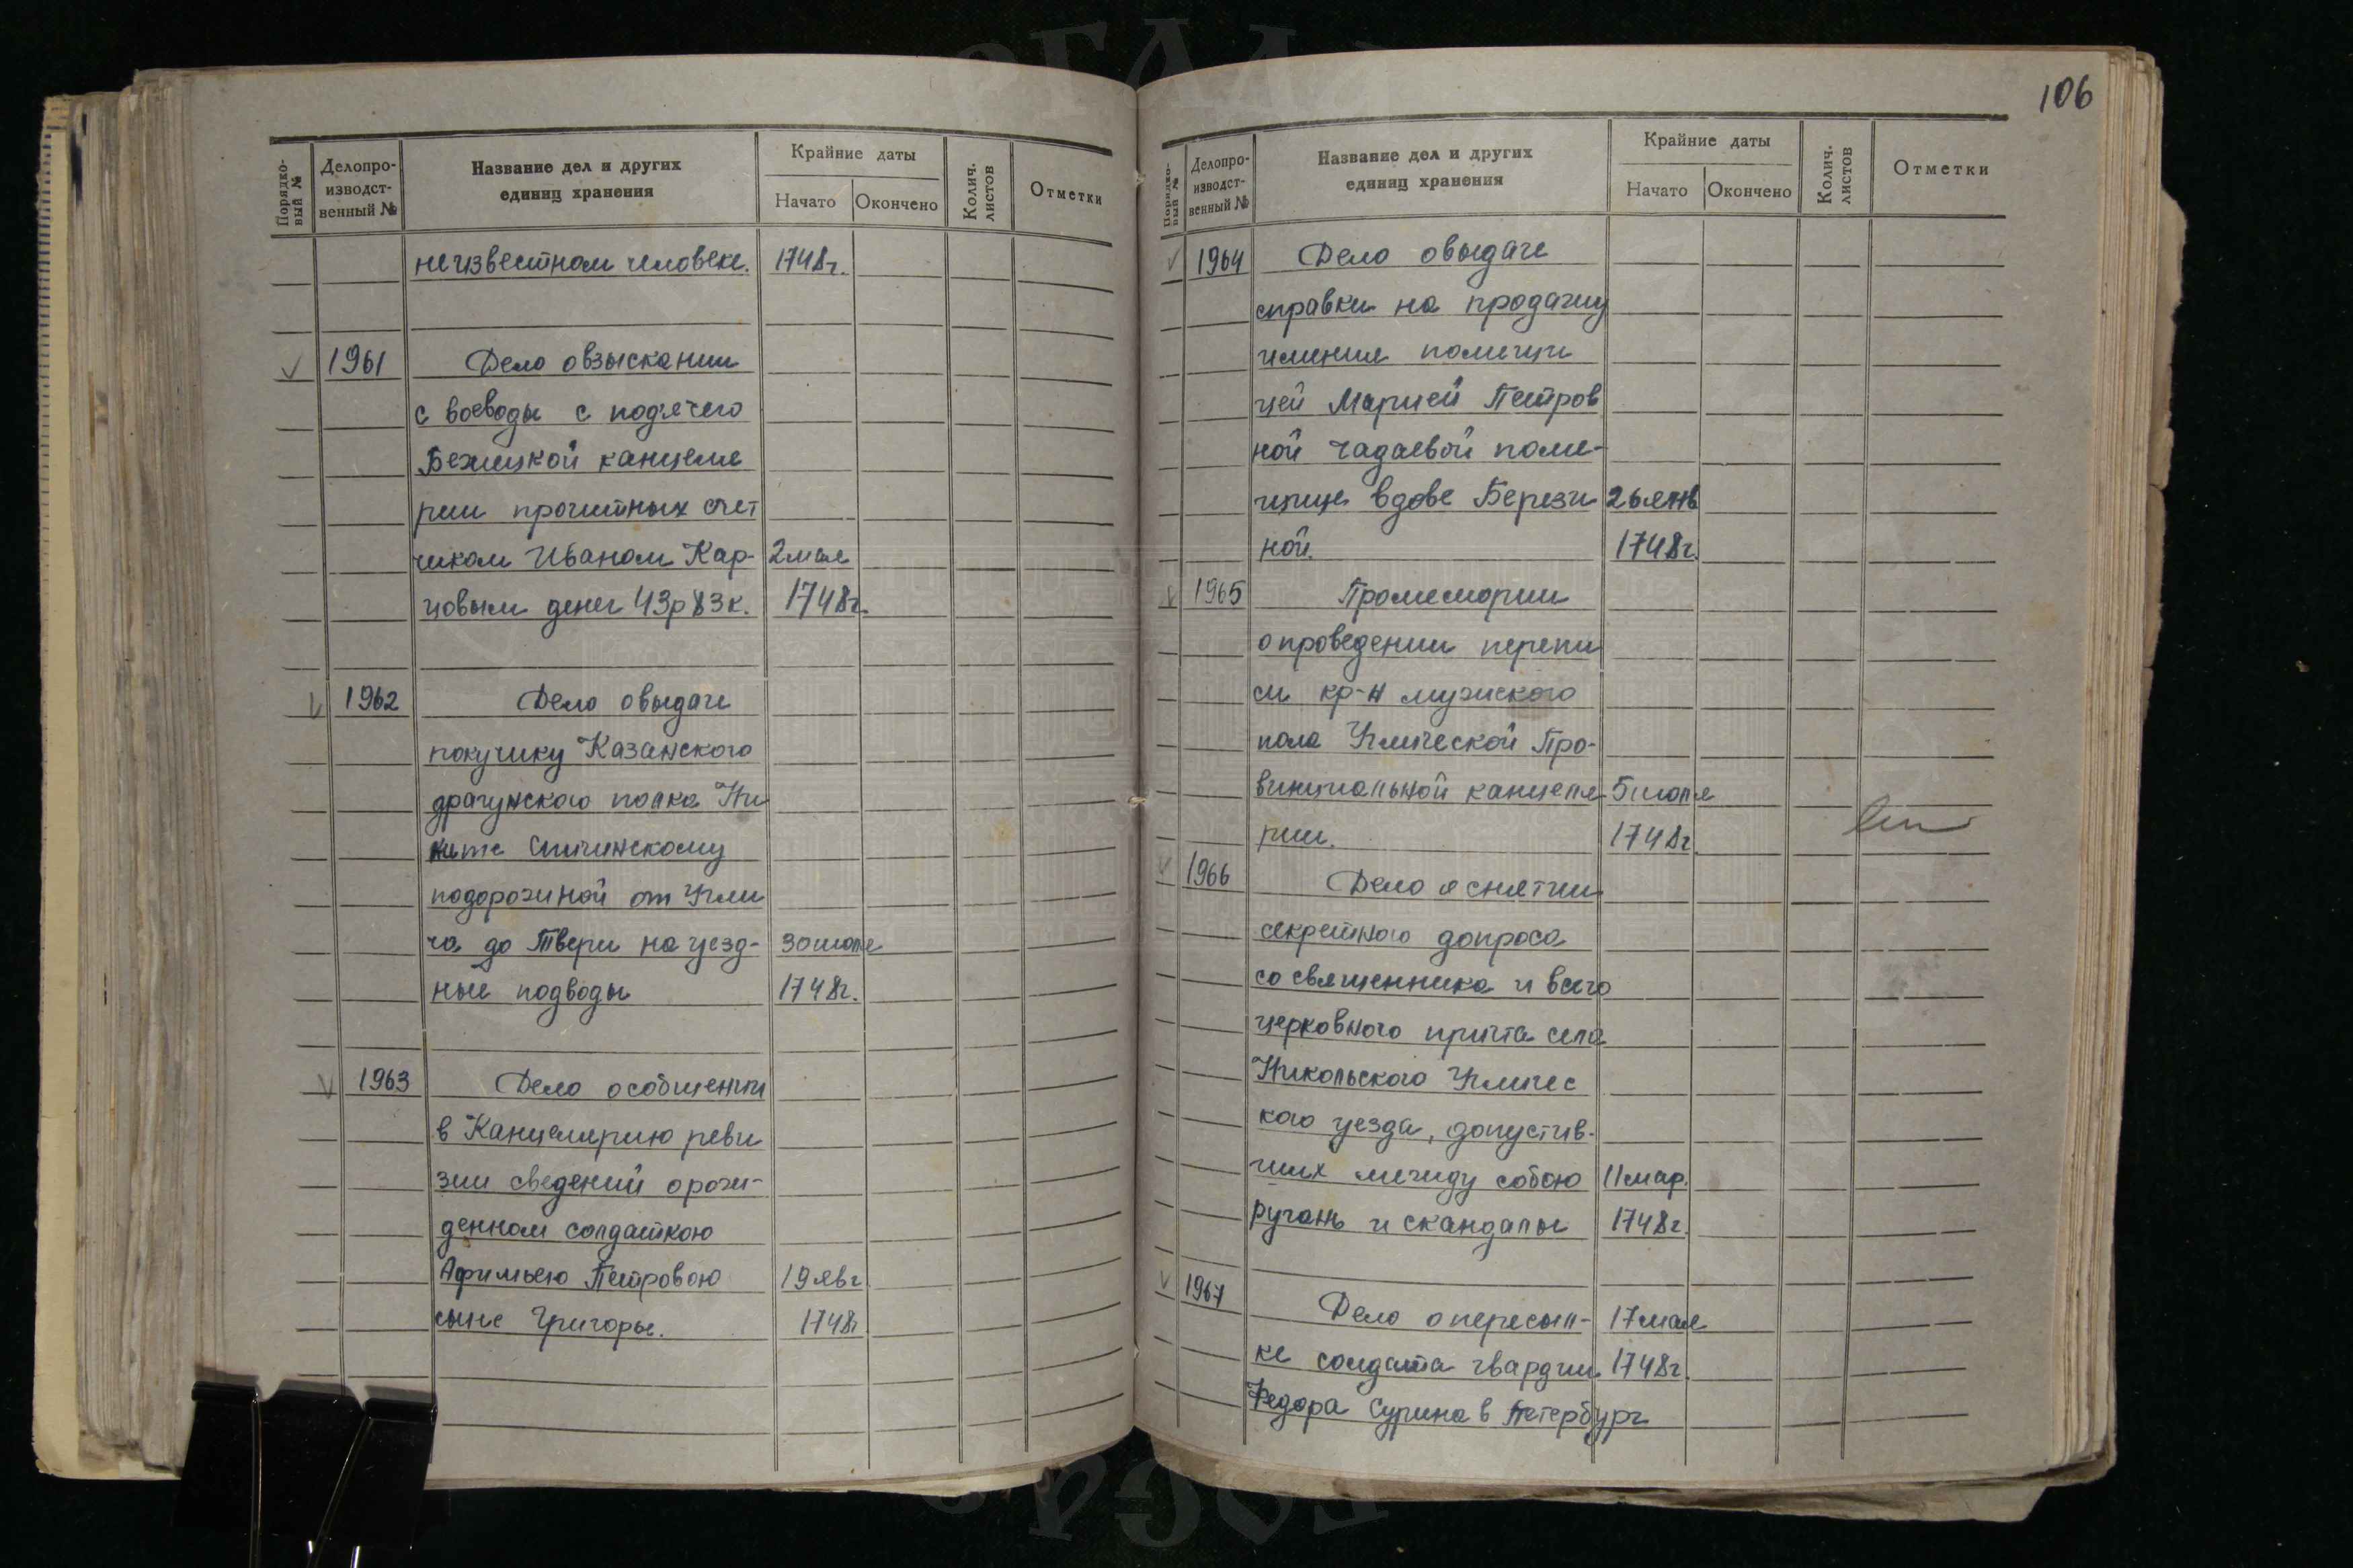 106
Порядко-
вый №
Делопро-
изводст-
венный №
Название дел и других
единиц хранения
Крайние даты
Начато
Окончено
Колич.
листов
Отметки
неизвестном человеке. 1748г.
1961 Дело о взыскании
с воеводы с подячего
Бежецкой канцеля
рии прочитных счет
чиком Иваном Кар- 2 мая
цовым денег 43р 83к. 1748г.
1962 Дело о выдаче
поручику Казанского
драгунского полка Ни
ките
подорожной от Угли
ча до Твери на уезд- 30 июля
ные подводы 1748г.
1963 Дело о сообщении
в Канцелярию реви
зии сведений о рож-
денном солдаткою
Афимьею Петровою 19 авг
сыне Григорье. 1748г
Порядко-
вый №
Делопро-
изводст-
венный №
Название дел и других
единиц хранения
Крайние даты
Начато
Окончено
Колич.
листов
Отметки
1964 Дело о выдаче
справки на продажу
имения помещи
цей Марией Петров
ной Чадаевой поме-
щице вдове Берези 26 янв
ной. 1748г.
1965 Промемории
о проведении перепи
си кр-н мужского
пола Угличской Про-
винциальной канцеля 5 июля
рии. 1748г.
1966 Дело о снятии
секретного допроса
со священника и всего
церковного причта села
Никольского Угличес
кого уезда, допустив-
ших между собою 11 мар.
ругань и скандалы 1748г.
1967 Дело о пересыл- 17 мая
ке солдата гвардии 1748г.
Федора Сурина в Петербург